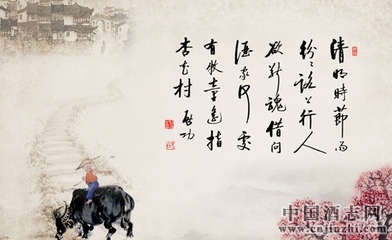 清明時節雨
紛々路上行人
欲斷魂借问
酒家何處
有牧童遙指
杏花村 启功
中国酒志网
www.cnjiuzhi.com